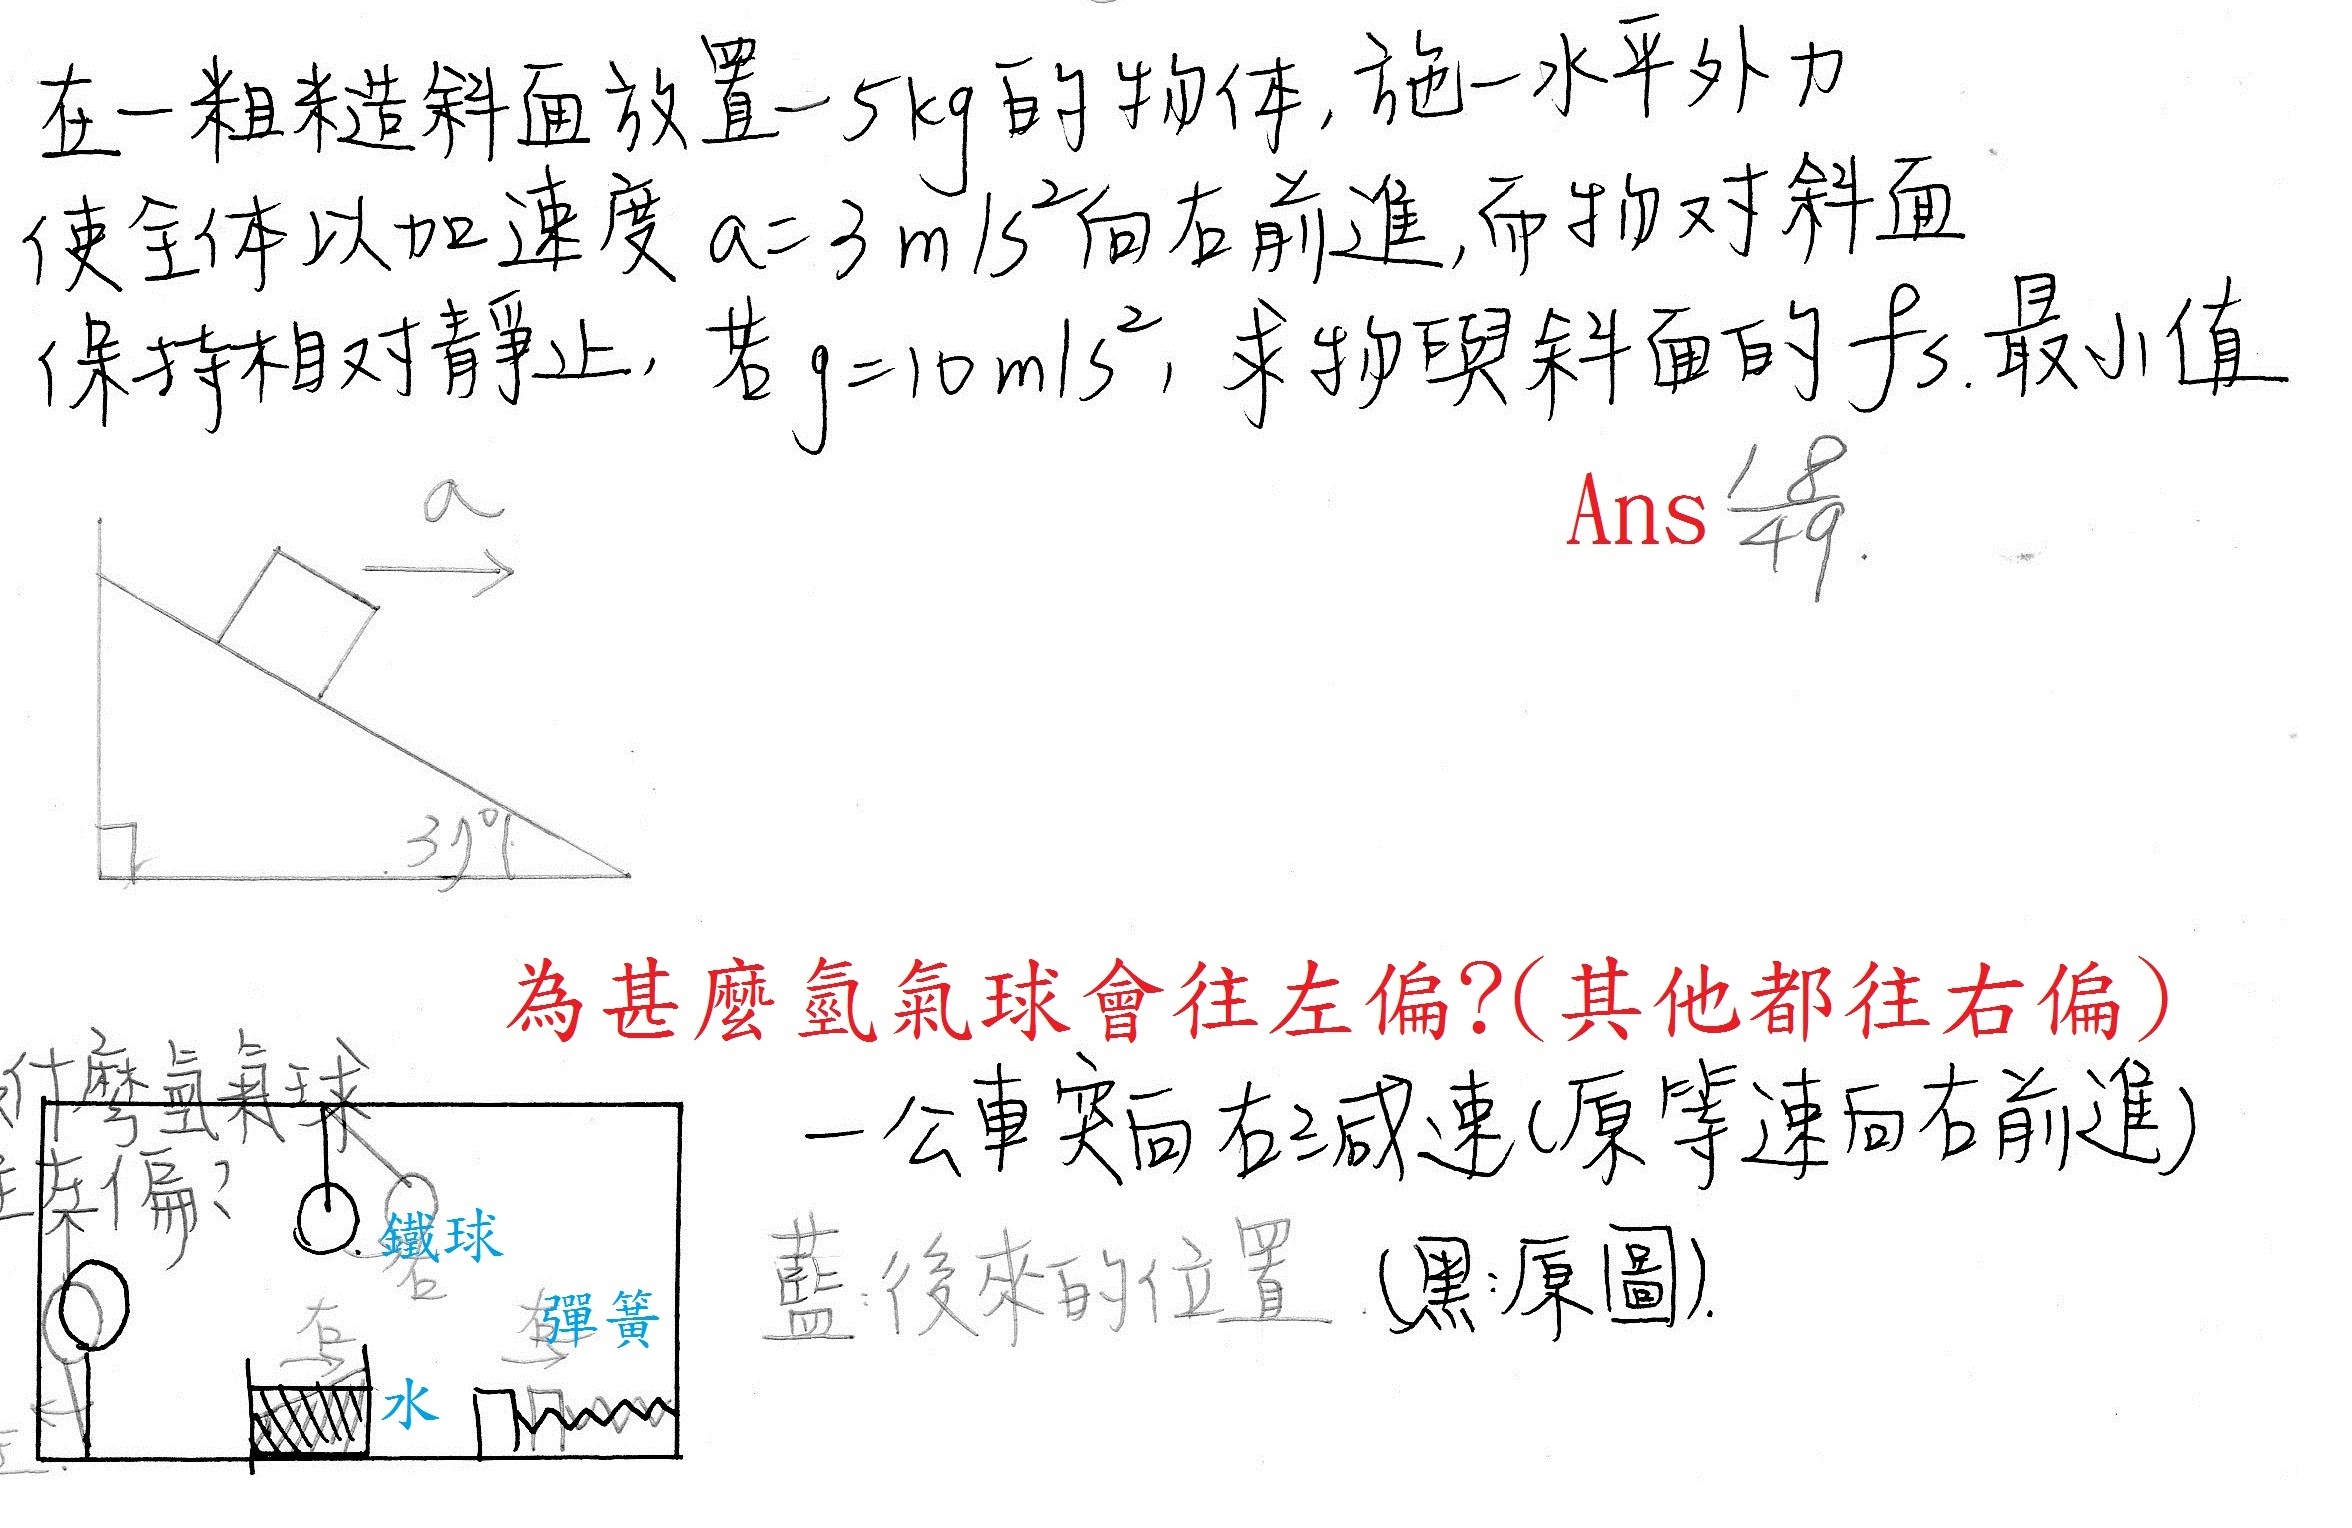 在一粗糙斜面放置一5kg的物体,施一水平外力
使全体以加速度 a=3 m/s²向右前進,而物对斜面
保持相对靜止,若g=10m/s²,求物與斜面的fs.最小值
Ans 18/49.
a
37°
為甚麼氫氣球會往左偏?(其他都往右偏)
什麼氫氣球
往左偏?
一公車突向右減速(原等速向右前進)
藍:後來的位置.(黑:原圖).
鐵球
右
右
右
彈簧
水
左.